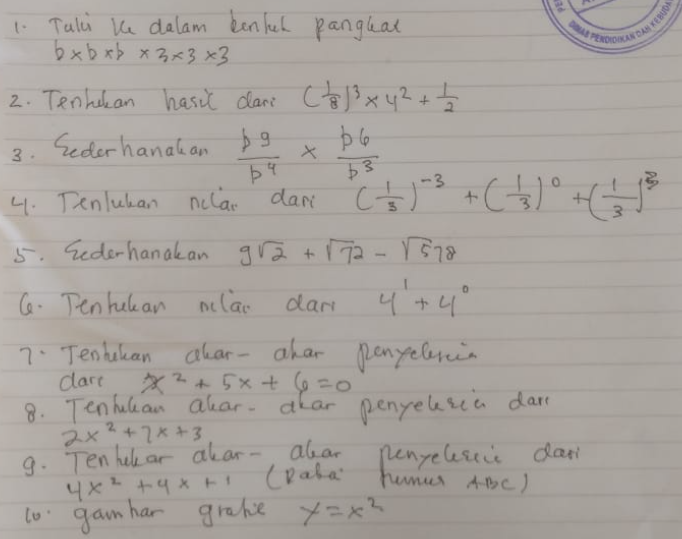 1. Tulis ke dalam bentuk pangkat
b×b×b × 3×3×3
2. Tentukan hasil dari (1/8)³ × 4² + 1/2
3. Sederhanakan b⁹/b⁴ × b⁶/b³
4. Tentukan nilai dari (1/3)⁻³ + (1/3)⁰ + (1/3)
5. Sederhanakan 9√2 + √72 - √578
6. Tentukan nilai dari 4¹ + 4⁰
7. Tentukan akar-akar penyelesain
dari x² + 5x + 6 = 0
8. Tentukan akar-akar penyelesain dari
2x² + 7x + 3
9. Tentukan akar-akar penyelesain dari
4x² + 4x + 1 (Pakai rumus ABC)
10. gambar grafik y = x²
DINAS PENDIDIKAN DAN